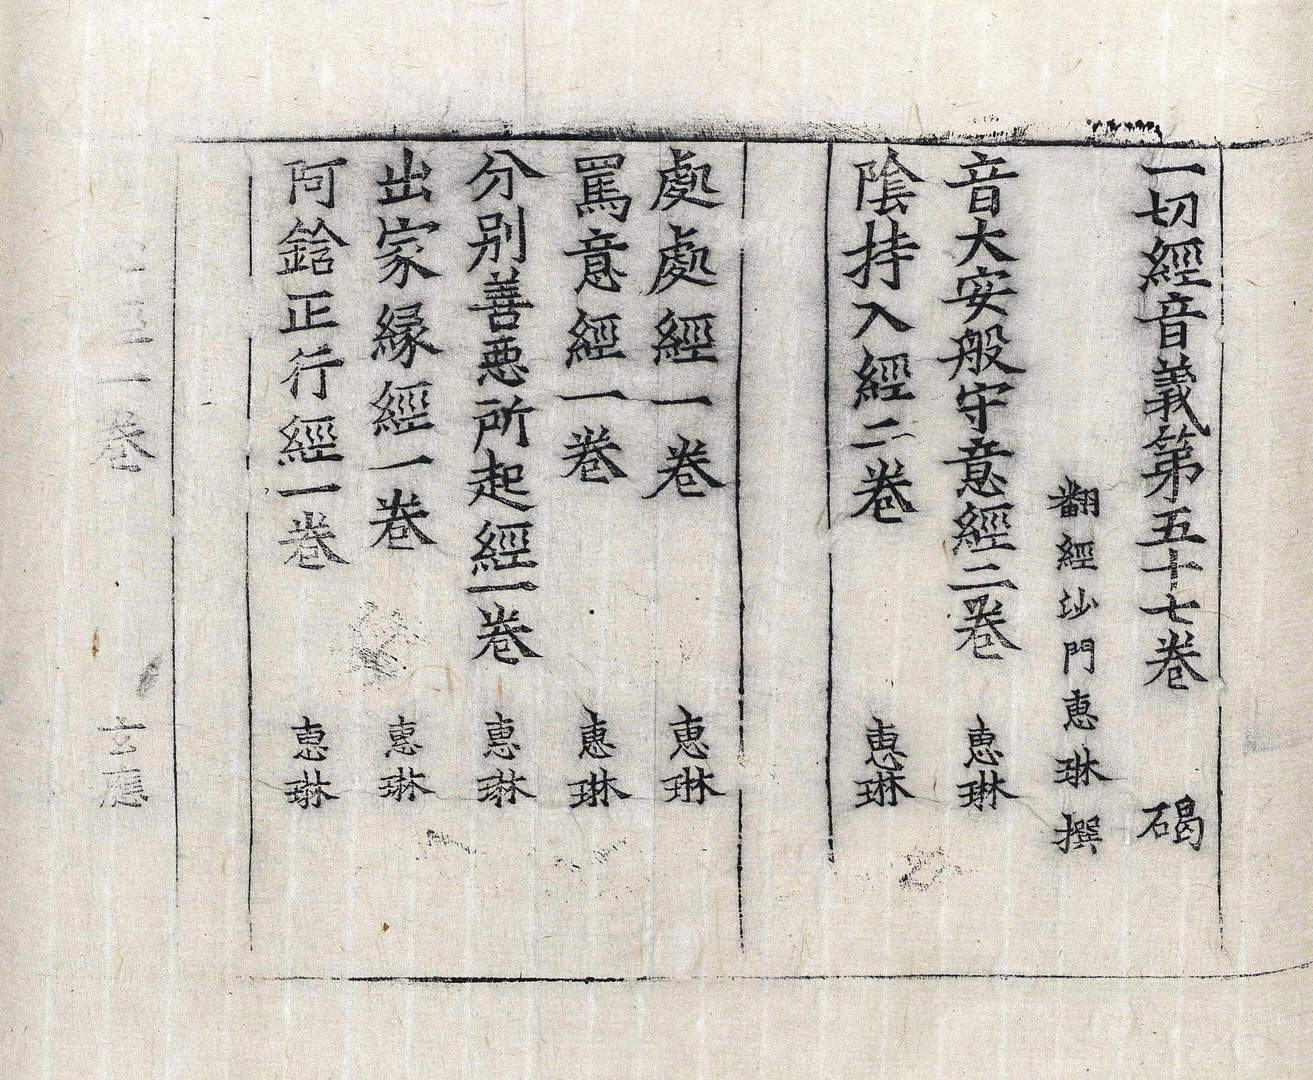 一切經音義第五十七卷 碣
翻經沙門惠琳撰
音大安般守意經二卷 惠琳
陰持入經二卷 惠琳
處處經一卷 惠琳
罵意經一卷 惠琳
分別善惡所起經一卷 惠琳
出家緣經一卷 惠琳
阿鋡正行經一卷 惠琳
經一卷 玄應